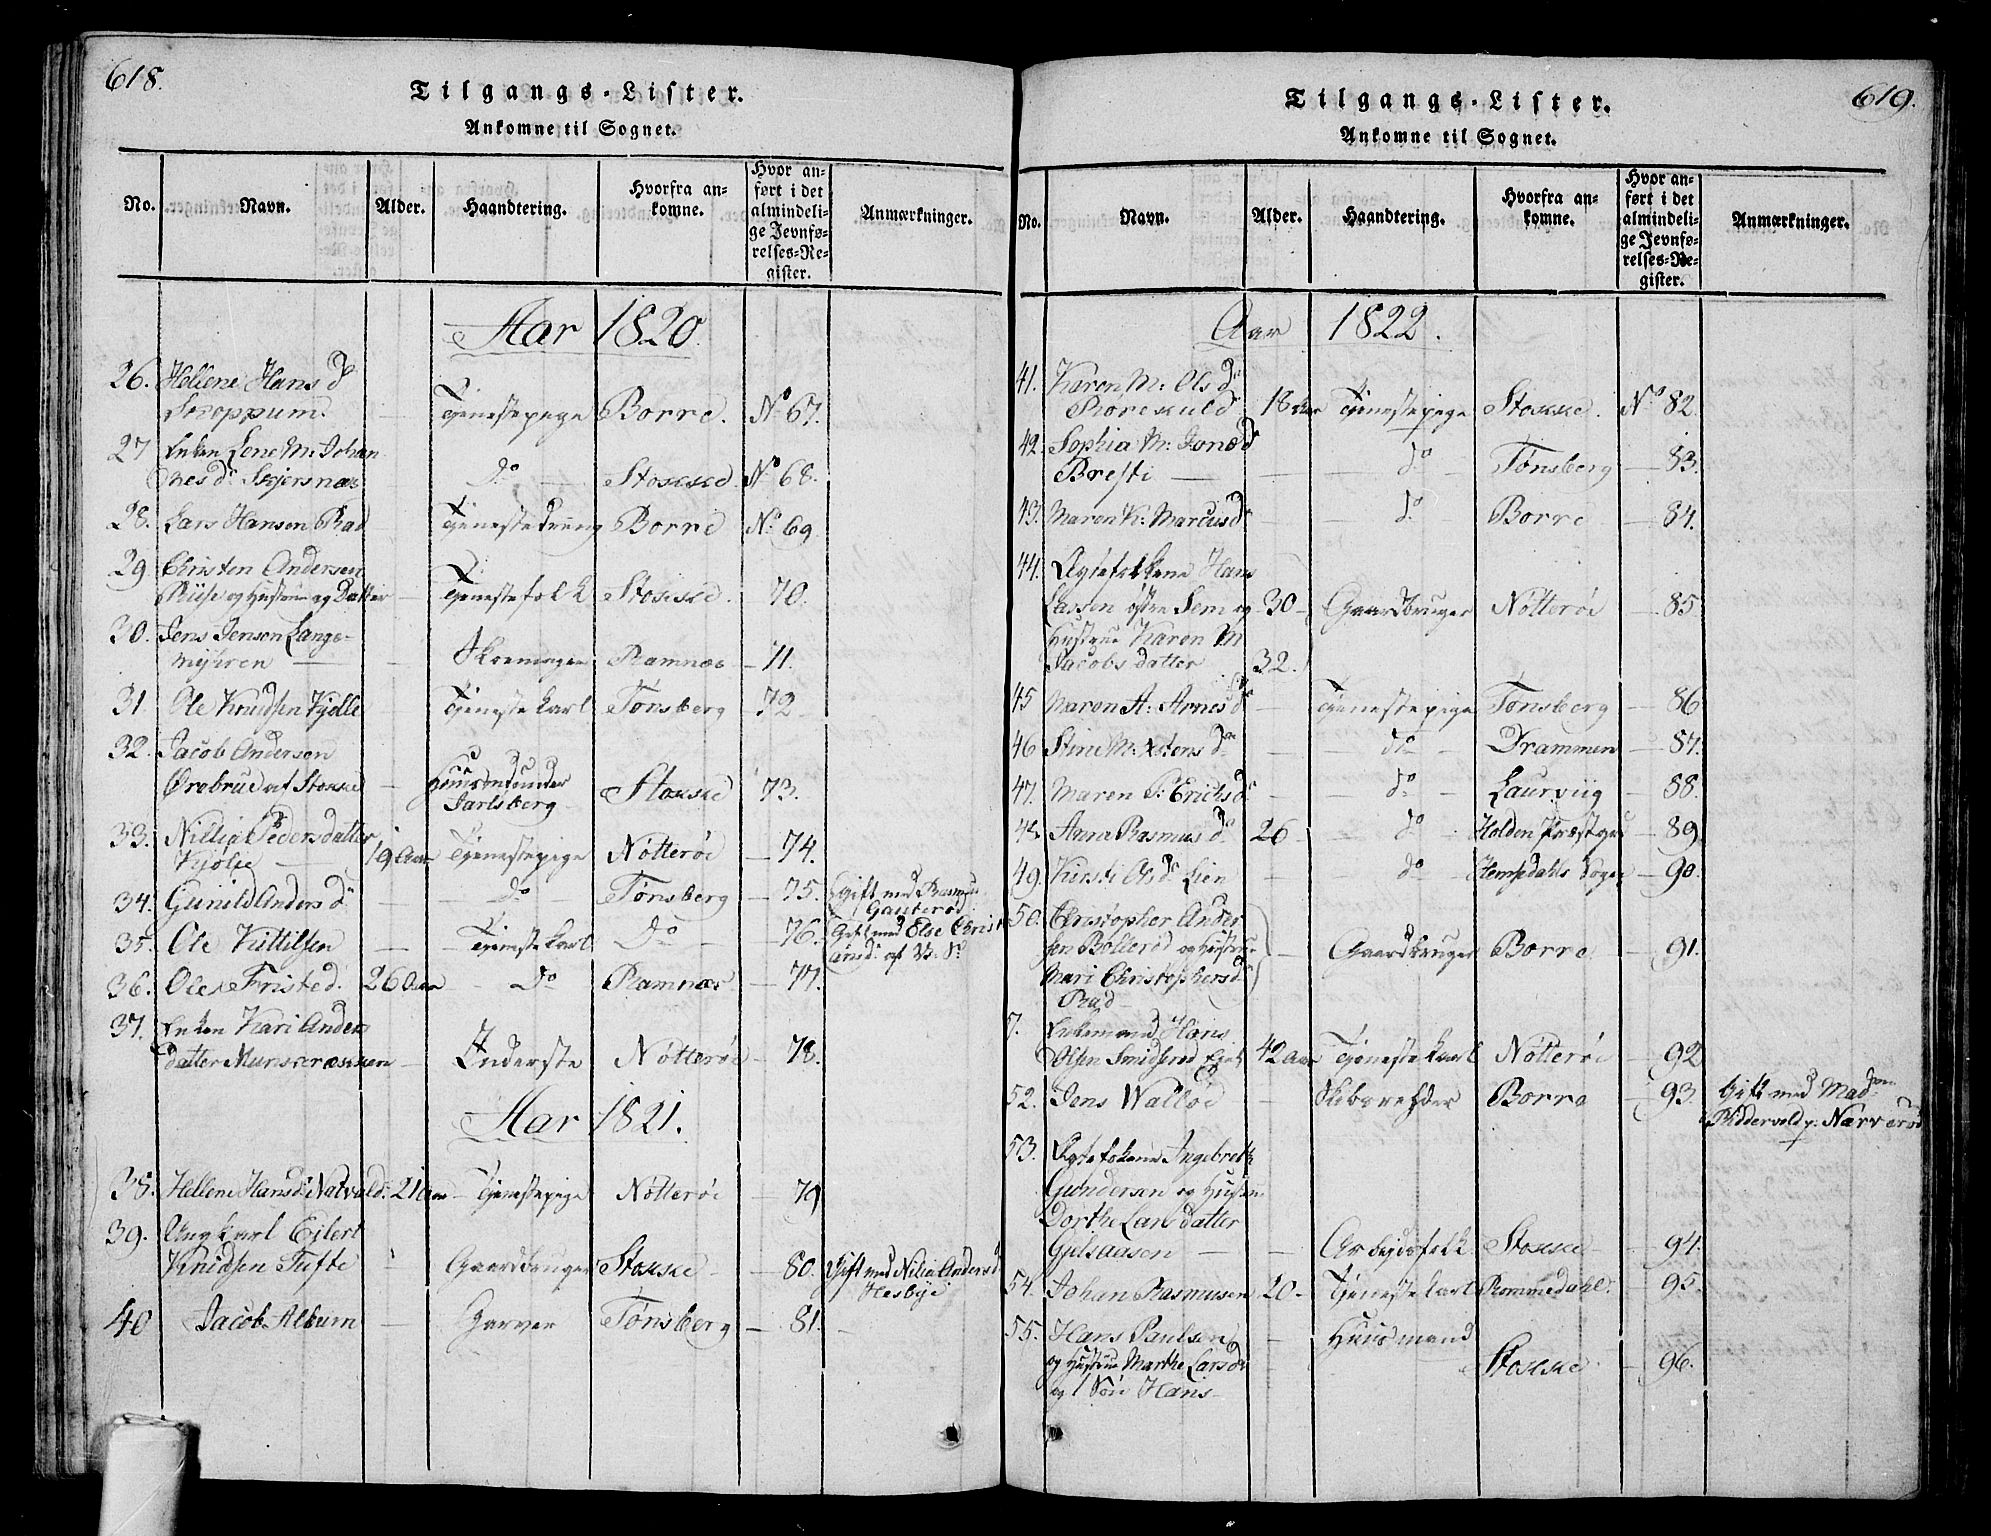 618.
Tilgangs-Lister.
Ankomne til Sognet.
No. Navn. Alder. Haandtering. Hvorfra an-
komne. Hvor an-
ført i det
almindeli-
ge Jevnfø-
relses-Re-
gister. Anmærkninger.
Aar 1820.
26. Hellene Hans d
Tjenestepige Borre. No 67.
27 Enken Lene M: Johan
nesd: Skjersnæs do Stokke. No 68.
28. Lars Hansen Rad Tjenestedreng Borre No 69
29 Christen Andersen
og Hustrue og Datter Tjenestefolk Stokke. 70.
30. Jens Jensen Lange-
myhren Ramnæs 71.
31 Ole Knudsen Kjølle Tjenestekarl Tønsberg 72
32. Jacob Andersen
Ørebrue af Stokke Huusmd under
Jarlsberg Stokke 73.
33. Nillia Pedersdatter
Kjølie 19 Aar Tjenestepige Nøtterøe 74.
34. Gunild Anders d do Tønsberg 75. Gift med Rasmus
Gauterød.
35. Ole Kittilsen Tjenestekarl Do 76. Gift med Else Christi
36. Ole Fristed. 26 Aar do Ramnæs 77.
37. Enken Kari Anders
datter Munkerækken Inderste Nøtterøe 78.
Aar 1821.
38. Hellene Hansd: Natvald: 21 Aar Tjenestepige Nøtterøe 79
39. Ungkarl Ejlert
Knudsen Tufte Gaardbruger Stokke 80. Gift med Nilia Andersd
Hesbye
40 Jacob Album Garver Tønsberg 81.
619.
Tilgangs-Lister.
Ankomne til Sognet.
No. Navn. Alder. Haandtering. Hvorfra an-
komne. Hvor an-
ført i det
almindeli-
ge Jevnfø-
relses-Re-
gister. Anmærkninger.
Aar 1822.
41. Karen M: Ols d
18 Aar Tjenestepige Stokke. No 82.
42. Sophia M: Jonæ d
Bresti do Tønsberg 83.
43. Maren K: Marcusd do Borre 84.
44. Ægtefolkene Hans
Larsen østre Sem og 30 Gaardbruger Nøtterøe 85
Hustrue Karen M
Jacobsdatter 32.
45 Maren A: Arnes d Tjenestepige Tønsberg 86
46 Stine M: d do Drammen 87.
47. Maren P: Erichsd do Laurviig 88.
48. Anna Rasmus d 26 do Holden Præstg 89
49. Kirsti Olsd Lien do Hemsedahls Sogn 90.
50. Christopher Ander
sen Bollerød og Hustrue Gaardbruger Borre 91.
Mari Christophersd
Rad
7. Enkemand Hans
Olsen Smidsrød 42 Aar Tjenestekarl Nøtterøe 92
52. Jens Walløe Skibsrehder Borre 93. Gift med Mad
Ridderwold p: Narverød
53. Ægtefolkene Ingebreth
Gundersen og Hustrue
Dorthe Larsdatter
Gulsaasen Arbejdsfolk Stokke 94.
54. Johan Rasmusen 20 Tjenestekarl Rommedahl. 95.
55. Hans Paulsen Huusmand
og Hustrue Marthe Larsd Stokke 96.
og 1 Søn Hans